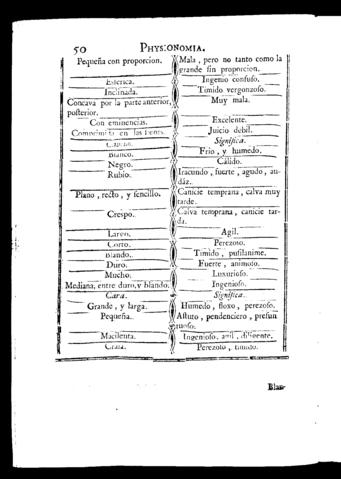 50 PHYSIONOMIA.
Pequeña con proporcion. Mala, pero no tanto como la
grande sin proporcion.
Esferica. Ingenio confuso.
Inclinada. Timido vergonzoso.
Concava por la parte anterior, Muy mala.
posterior.
Con eminencias. Excelente.
Comprimida en las sienes. Juicio debil.
Significa.
Blanco. Frio, y humedo.
Negro. Cálido.
Rubio. Iracundo, fuerte, agudo, au-
dáz.
Plano, recto, y sencillo. Canicie temprana, calva muy
tarde.
Crespo. Calva temprana, canicie tar-
da.
Largo. Agil.
Corto. Perezoso.
Blando. Timido, pusilanime.
Duro. Fuerte, animoso.
Mucho. Luxurioso.
Mediana, entre duro, y blando. Ingenioso.
Cara. Significa.
Grande, y larga. Humedo, floxo, perezoso.
Pequeña. Astuto, pendenciero, presun
tuoso.
Macilenta. Ingenioso, agil, diligente.
Crasa. Perezoso, timido.
Blan-